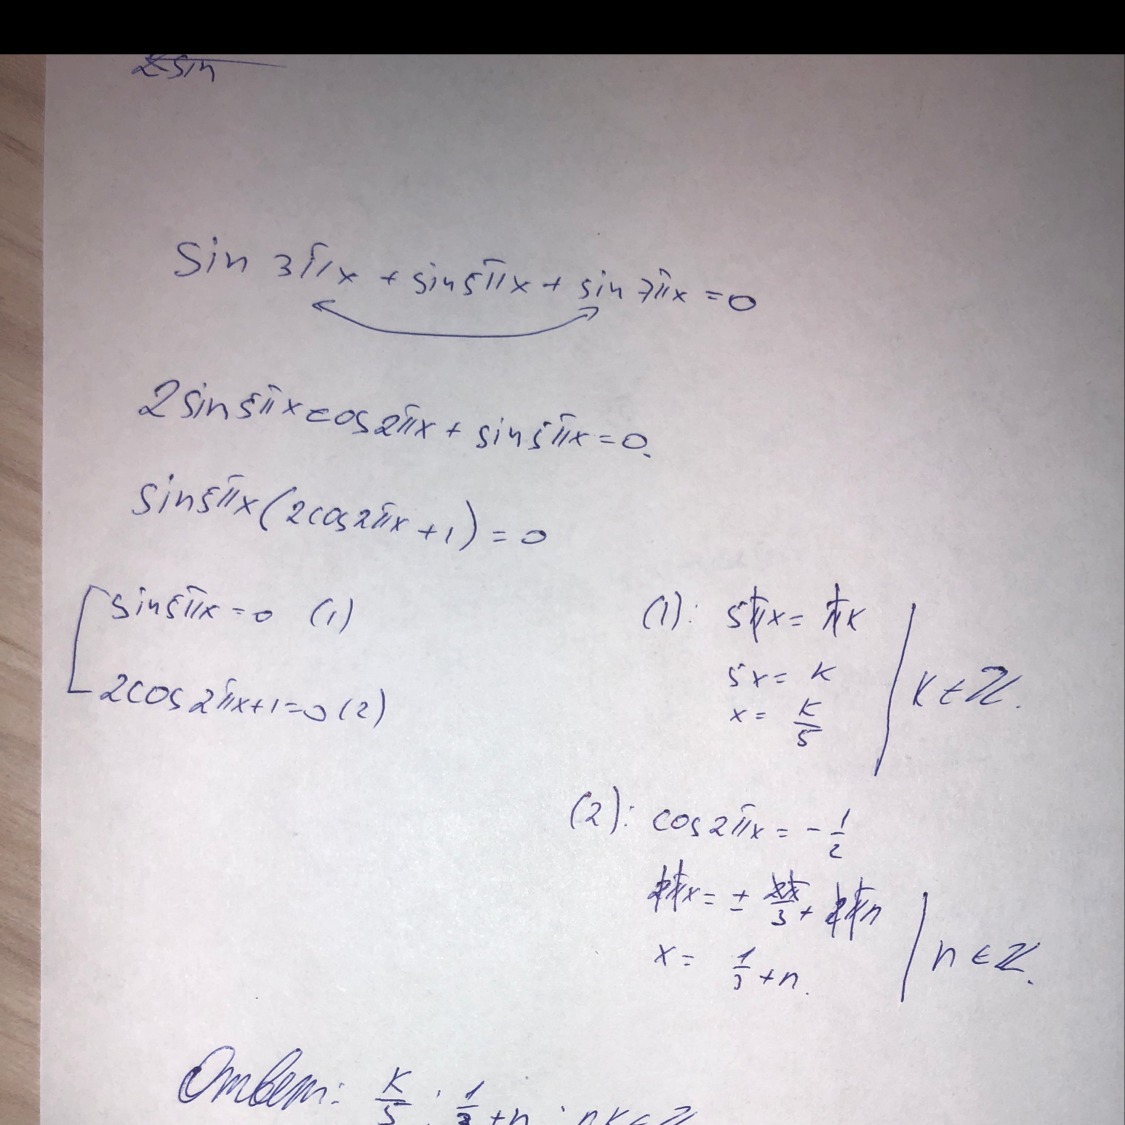 2 sin
sin 3πx + sin5πx + sin 7πx = 0
2 sin5πx cos2πx + sin5πx = 0.
sin5πx(2cos2πx + 1) = 0
sin5πx = 0 (1)
2cos2πx+1=0 (2)
(1): 5πx = πk
5x = k
x = k/5
k ∈ ℤ.
(2): cos2πx = - 1/2
2πx = ± 2π/3 + 2πn
x = 1/3 + n.
n ∈ ℤ.
Ответ: k/5 ; 1/3 + n ; n,k ∈ ℤ